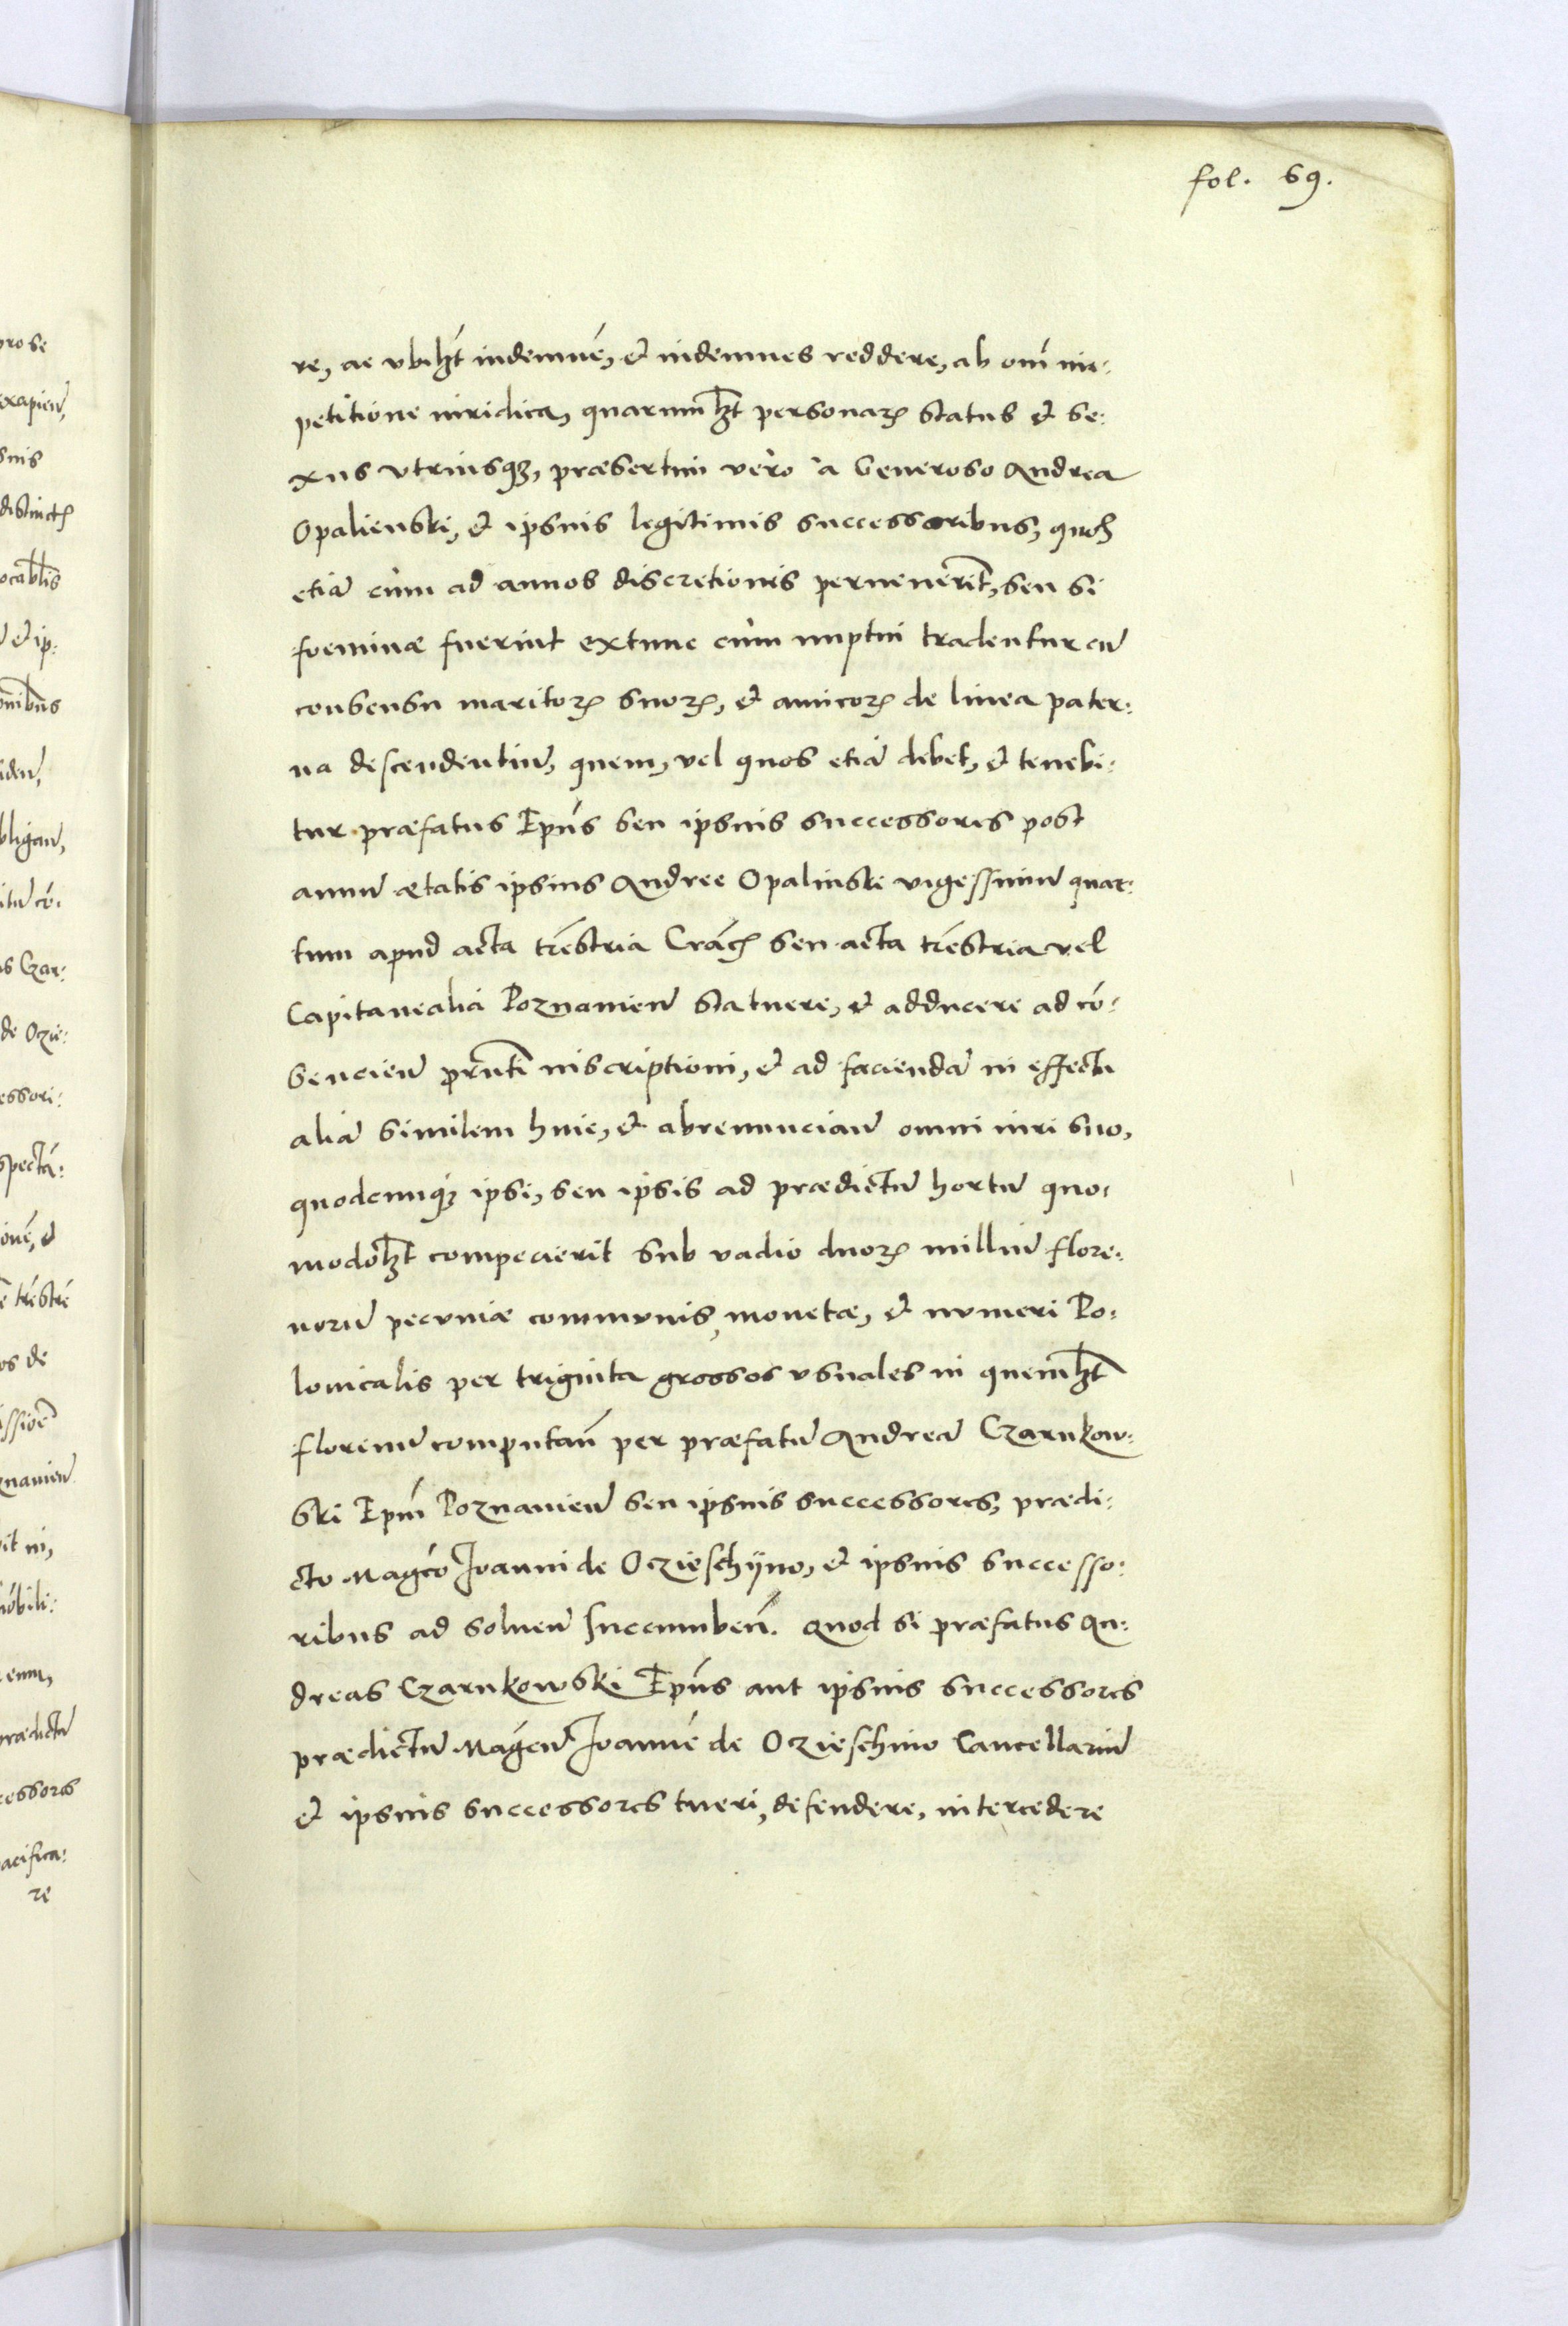 fol. 69.
re, ac vbilꝫt indemnē, et indemnes reddere, ab om̄i im⸗
petitione iuridica, quarumlꝫt personaꝝ status et se⸗
xus vtriusqꝫ, præsertim vero à Generoso Andrea
Opalienski, et ipsius legitimis successoribus, quos
etiā cùm ad annos discretionis peruenerīt, seu si
foeminæ fuerint extunc cùm nuptui tradentur cū
consensu maritoꝝ suoꝝ, et amicoꝝ de linea pater⸗
na descendentiū, quem, vel quos etiā debet, et tenebi⸗
tur præfatus Ep̄us seu ipsius successores post
annū ætatis ipsius Andree Opalinski vigessimū quar⸗
tum apud acta tr̄estria Crac̄ seu acta tr̄estria vel
Capitanealia Poznanien̄ statuere, et adducere ad cō⸗
sencien̄ pr̄nti inscriptioni, et ad faciendā in effectu
aliā similem huic, et abrenuncian̄ omni iuri suo,
quodcunqꝫ ipsi, seu ipsis ad prædictū hortū quo⸗
modolꝫt compecierit sub vadio duoꝝ milliū flore⸗
norū pecuniæ communis, monetæ, et nvmeri Po⸗
lonicalis per triginta grossos vsuales in quemlꝫt
florenū computan̄ per præfatū Andreā Czarnkow⸗
ski Ep̄m Poznanien̄ seu ipsius successores, prædi⸗
cto Magc̄o Joanni de Oczieschÿno, et ipsius successo⸗
ribus ad soluen̄ succumben̄. Quod si præfatus An⸗
dreas Czarnkowski Ep̄us aut ipsius successores
prædictū Magc̄ū Joannē de Oczieschino Cancellariū
et ipsius successores tueri, defendere, intercedere